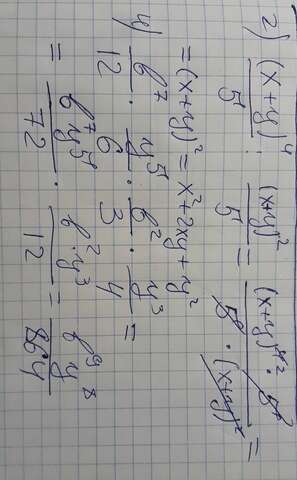 2) (x+y)⁴/5 : (x+y)²/5 = (x+y)⁴² · 5/5 · (x+y)² =
= (x+y)² = x² + 2xy + y²
4) b⁷/12 · y⁵/6 · b²/3 · y³/4 =
= b⁷y⁵/72 · b²y³/12 = b⁹y⁸/864